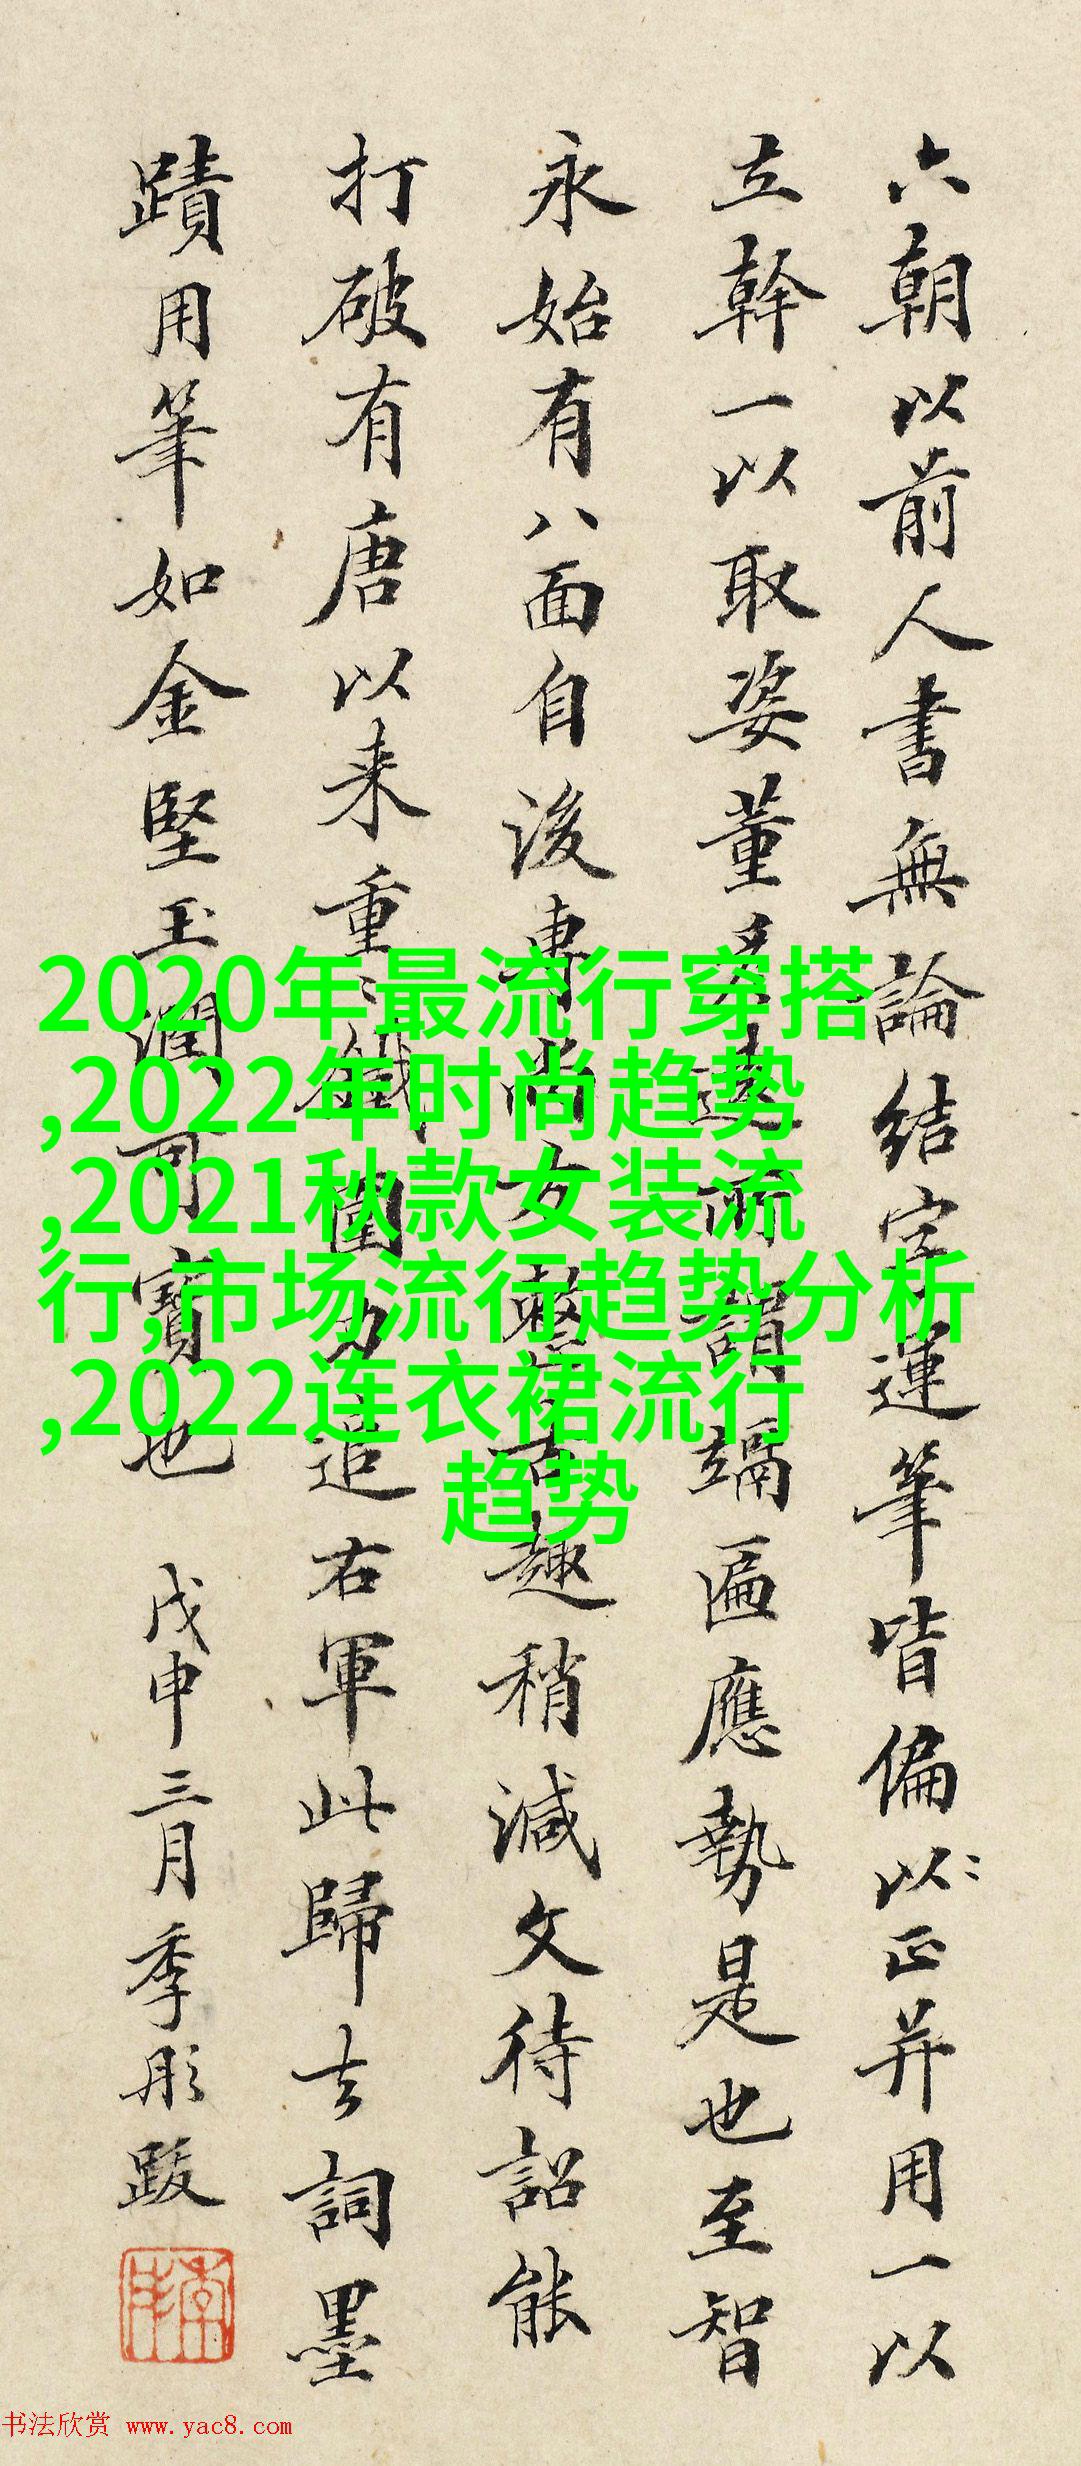 六朝以前人書無論結字運筆皆偏以正并用一以
立幹一以取姿董遠所謂匾應勢是也至智
永始有八面自後專尚女整古趣稍減文待詔能
打破有唐以来重鐵圍力追右軍此歸去詞墨
蹟用筆如金堅玉潤可寶也 戊申三月季彤跋
2020年最流行穿搭
,2022年时尚趋势
,2021秋款女装流
行,市场流行趋势分析
,2022连衣裙流行
趋势
书法欣赏 www.yac8.com